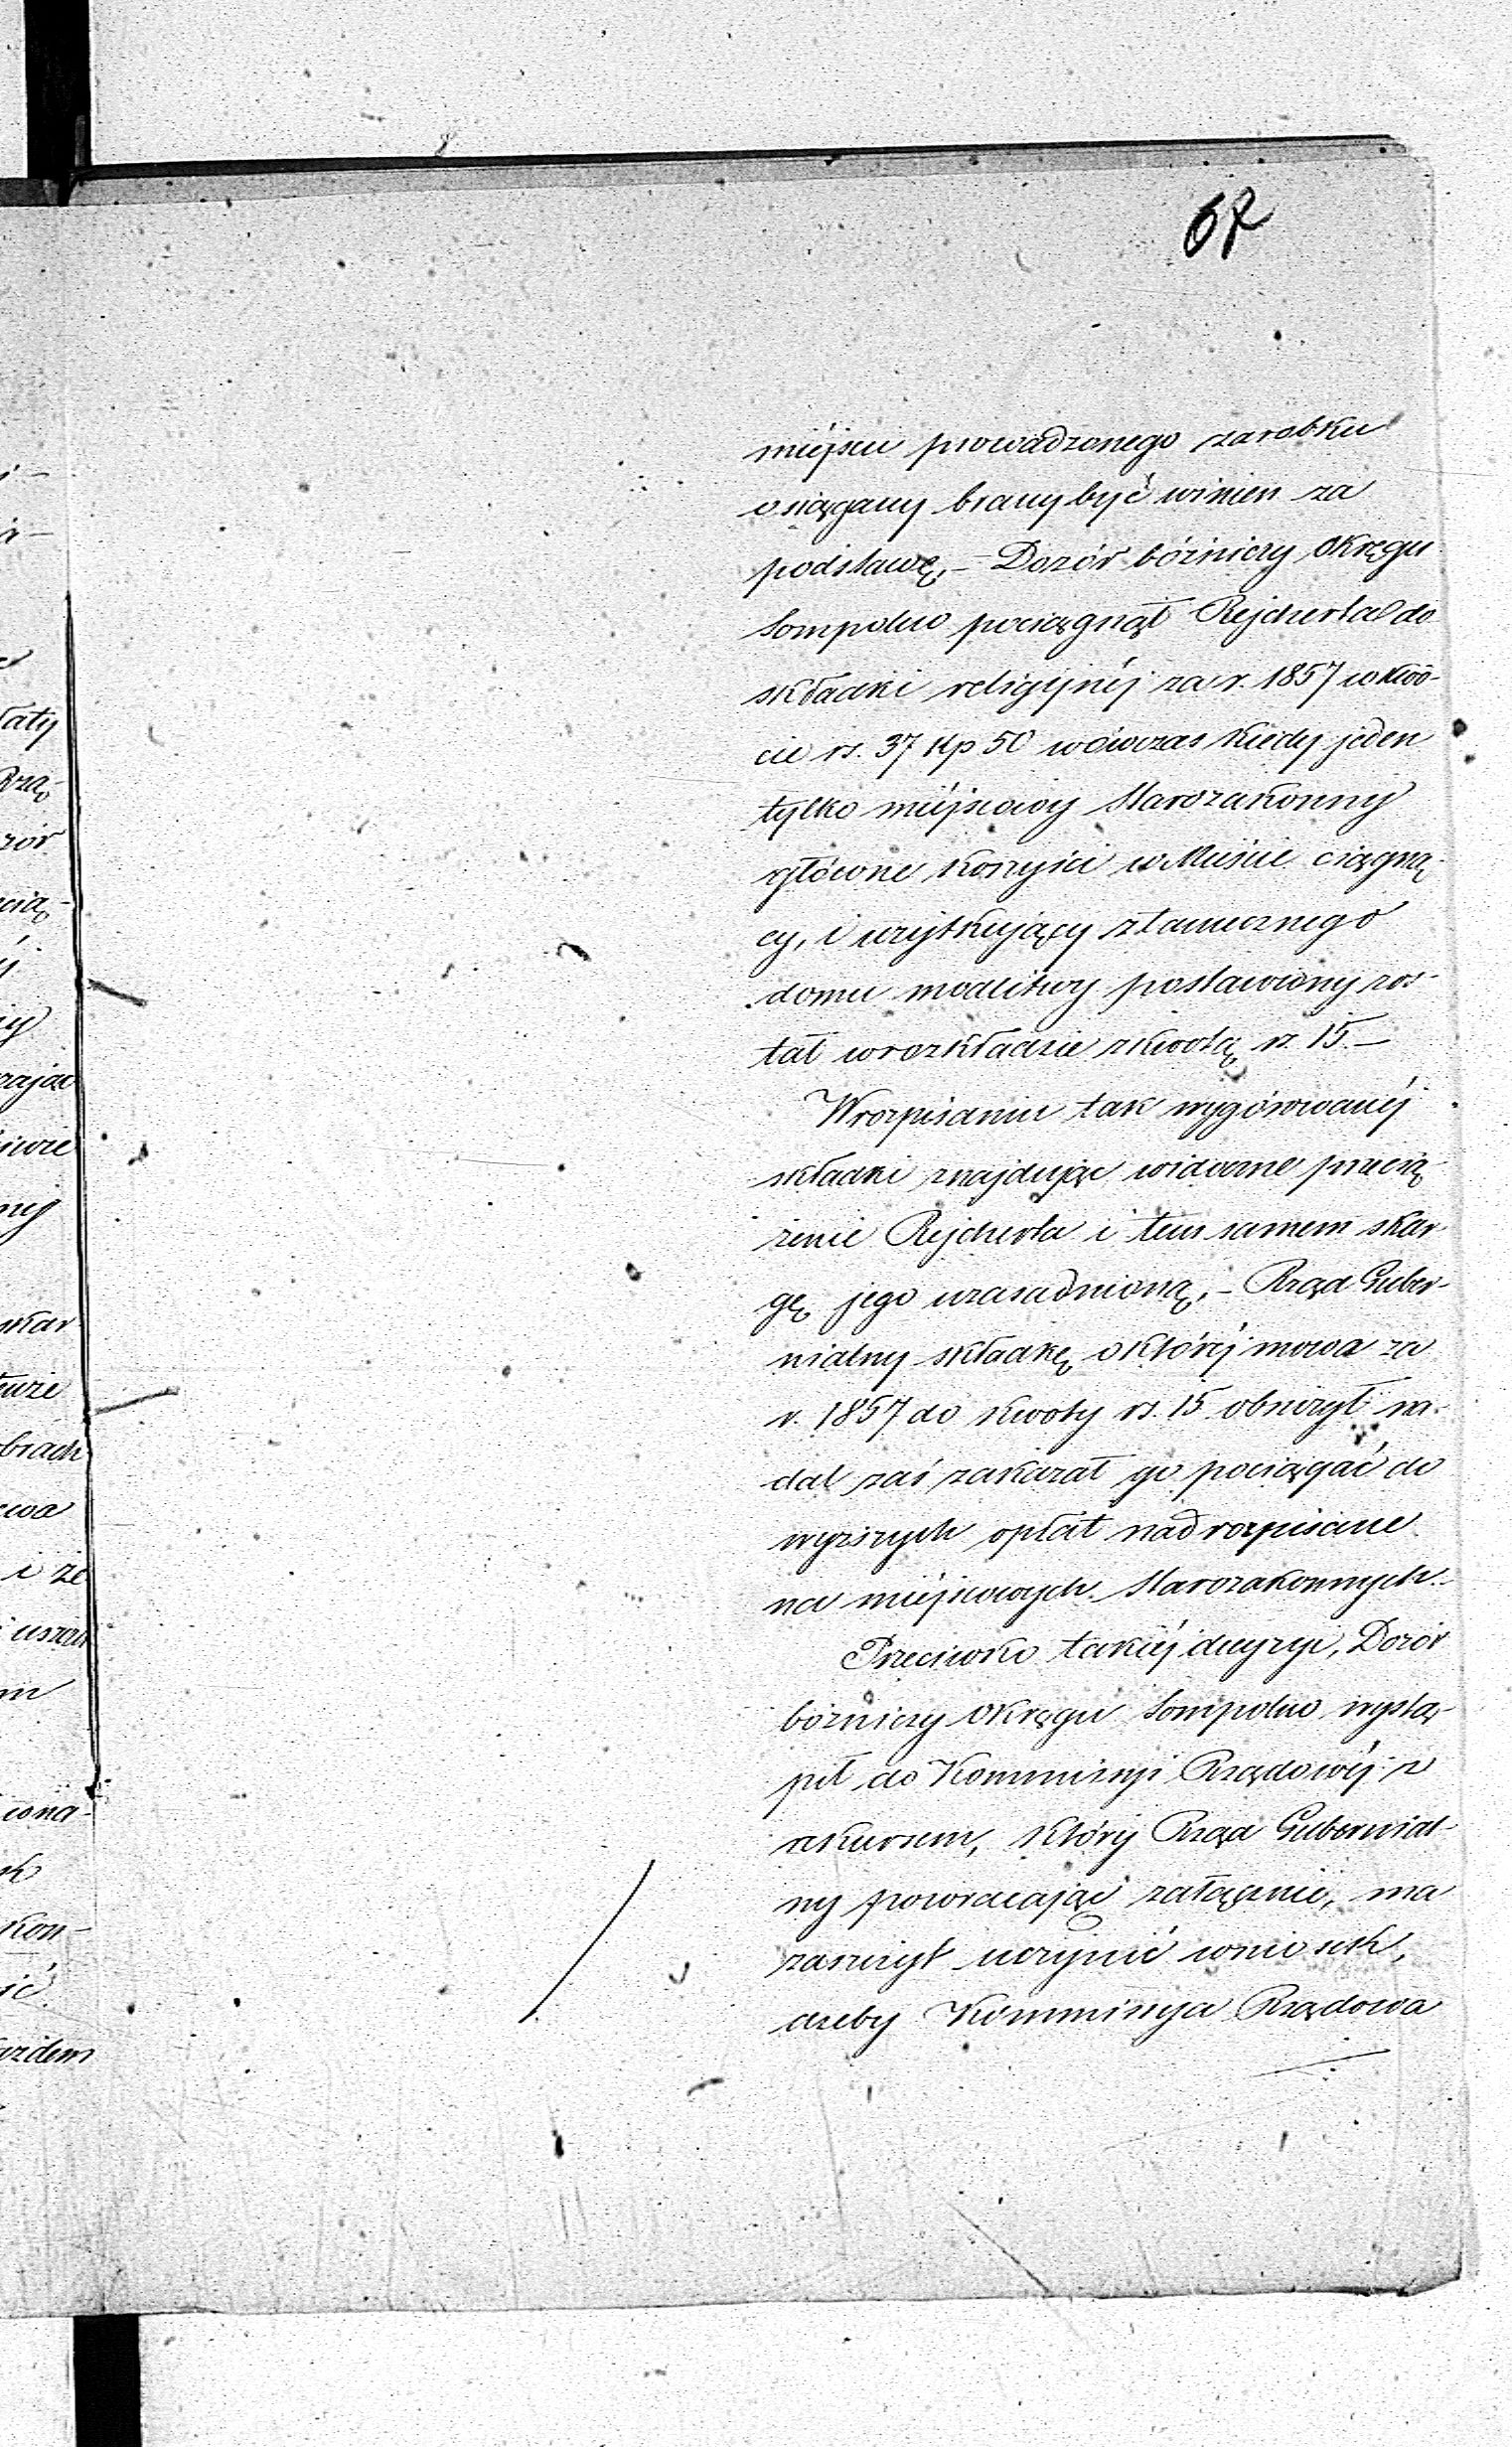 67
miéjscu prowadzonego zarobku
osiągany brany być winien za
podstawę, – Dozór bóźniczy Okręgu
Sompolno pociągnął Rejcherta do
składki religijnéj za r. 1857 w kwo-
cie rs. 37 kp 50 wówczas kiedy jeden
tylko miéjscowy Starozakonny
główne korzyści w Mieście ciągną-
cy, i użytkujący z tamecznego
domu modlitwy postawiony zos-
tał w rozkładzie z kwotą rs. 15. –
W rozpisaniu tak wygórowanéj
składki znajdując widoczne przecią-
żenie Rejcherta i tem samem skar-
gę jego uzasadnioną, – Rząd Guber-
nialny składkę o któréj mowa za
r. 1857 do kwoty rs. 15 obniżył na-
dal zaś zakazał go pociągać do
wyższych opłat nad rozpisane
na miéjscowych Starozakonnych. –
Przeciwko takiéj decyzyi, Dozór
bóźniczy Okręgu Sompolno wystą-
pił do Kommissyi Rządowéj z
rekursem, który Rząd Gubernial-
ny powracając załącznie, ma
zaszczyt uczynić wniosek,
ażeby Kommissya Rządowa
ały
Rzą-
zór
cią-
zając
skar
brach
i że
kon-